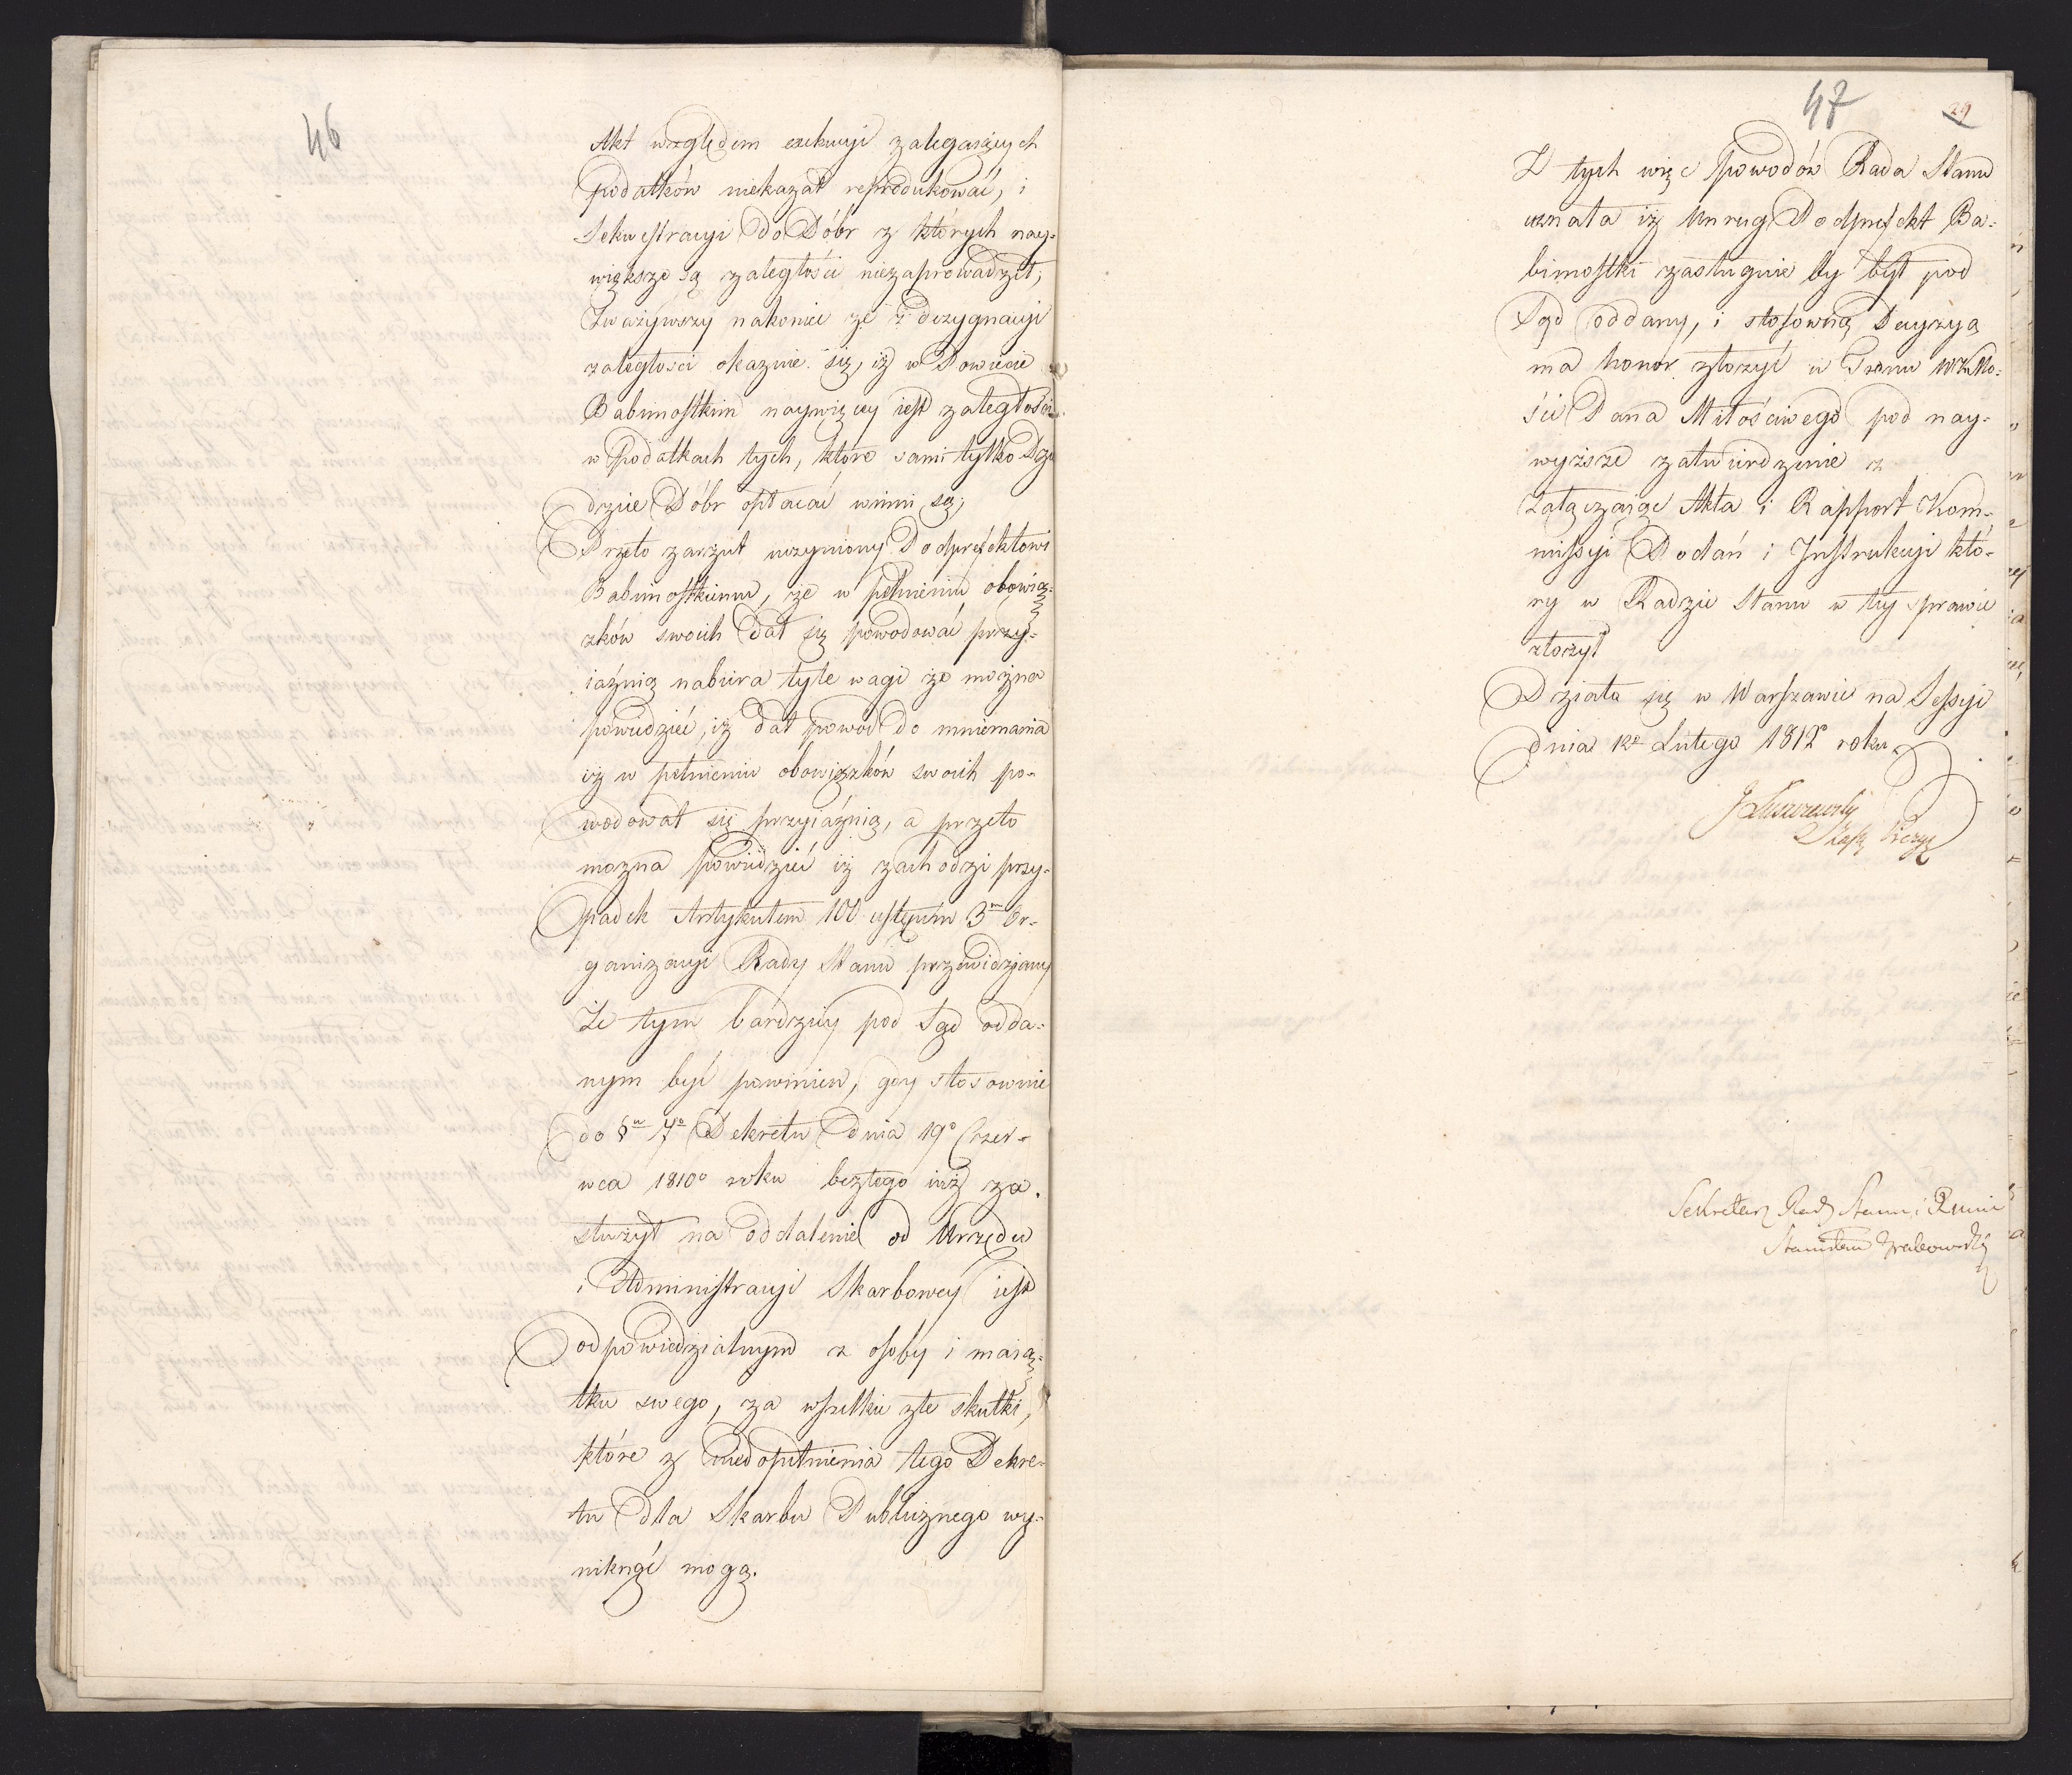 46
Akt względem exekucyi zalegaiących
podatków niekazał reprodukować, i
Sekwestracyi do Dóbr z których nay-
większe są zaległości niezaprowadził,
Zważywszy nakoniec że z dezygnacyi
zaległości okazuie się, iż w Powiecie
Babimostkim naywięcey iest zaległości
w podatkach tych, które sami tylko Dzie-
dzice Dóbr opłacać winni są;
Przeto zarzut uczyniony Podprefektowi
Babimostkiemu, że w pełnieniu obowią-
zków swoich dał się powodować przy-
iaźnią nabiera tyle wagi że można
powiedzieć, iż dał powód do mniemania
iż w pełnieniu obowiązków swoich po-
wodował się przyiaźnią, a przeto
można powiedzieć iż zachodzi przy-
padek Artykułem 100 ustępem 3m Or-
ganizacyi Rady Stanu przewidziany
Że tym bardziey pod Sąd odda-
nym być powinien, gdy stosownie
do §u 7o Dekretu dnia 19o Czer-
wca 1810o roku beztego iuż za-
służył na oddalenie od Urzędu
i Administracyi Skarbowey iest
odpowiedzialnym z osoby i maią-
tku swego, za wszelkie złe skutki,
które z niedopełnienia tego Dekre-
tu dla Skarbu Publicznego wy-
niknąć mogą.
47
29
Z tych więc powodów Rada Stanu
uznała iż Unrug Podprefekt Ba-
bimostki zasługuie by był pod
Sąd oddany, i stosowną Decyzyą
ma honor złożyć u Tronu WKMo-
ści Pana Miłościwego pod nay-
wyższe zatwierdzenie z
załączaiąc Akta i Rapport Kom-
missyi Podań i Instrukcyi któ-
ry w Radzie Stanu w tey sprawie
złożył
Działo się w Warszawie na Sessyi
dnia 12o Lutego 1812 roku
J Łuszczewski
Sekretarz Rady Stanu i
Stanisław Grabowski